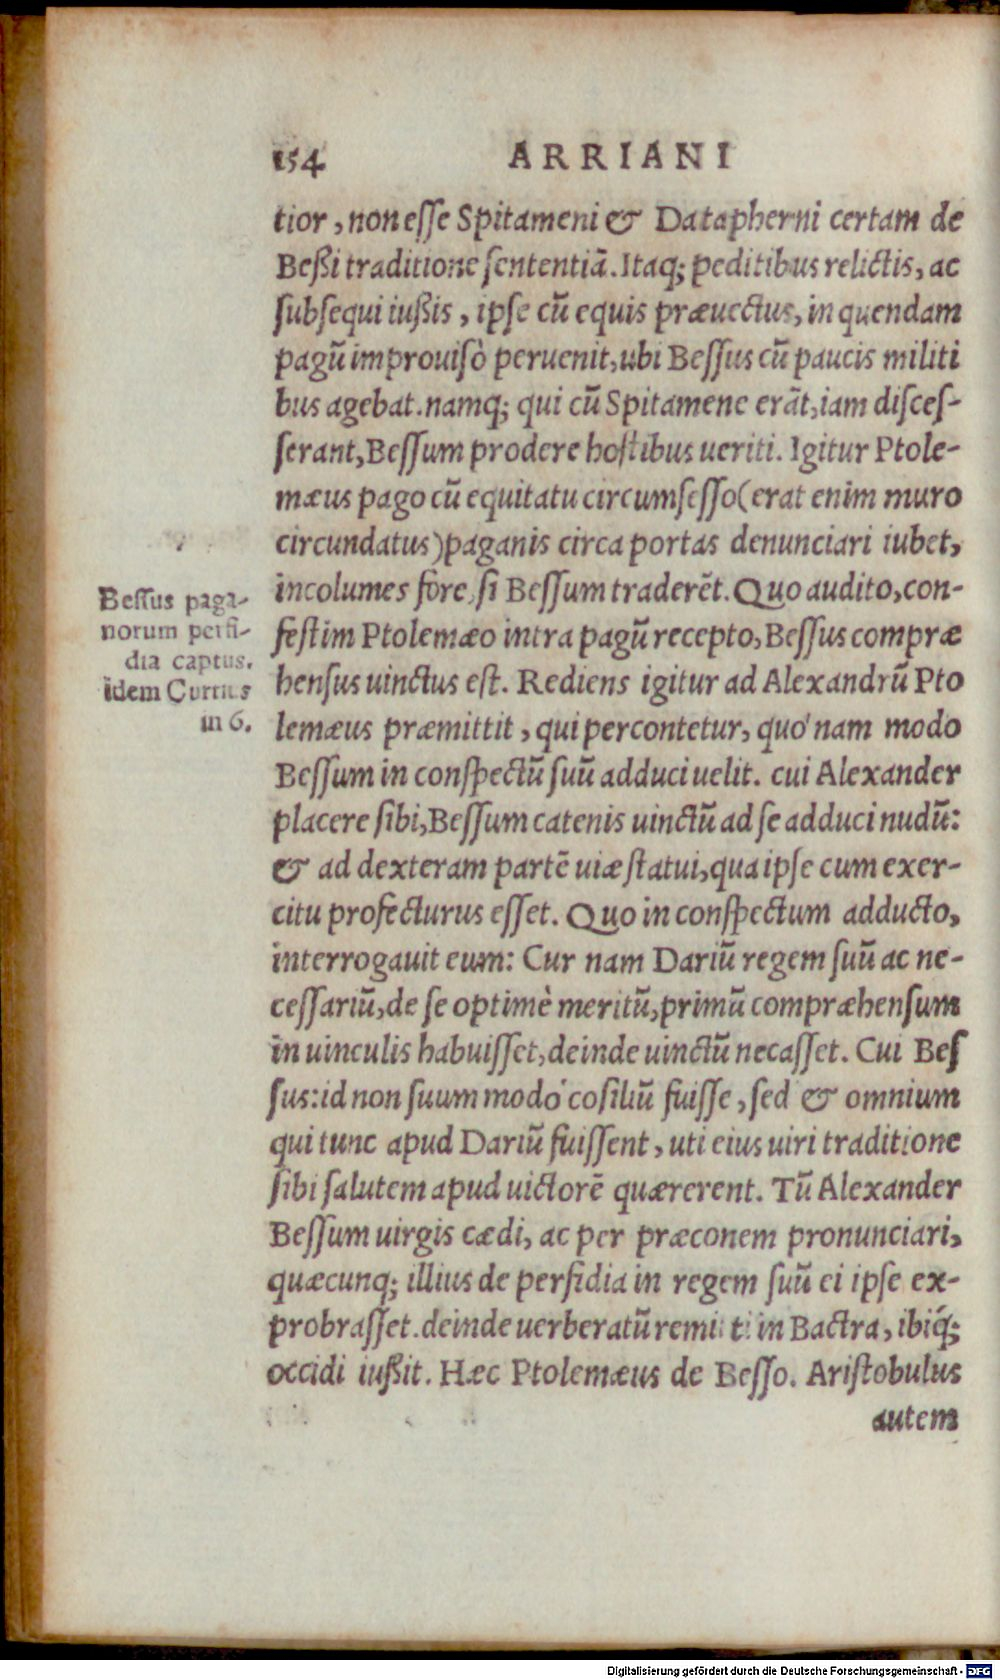 154 ARRIANI
tior, non esse Spitameni & Datapherni certam de
Beßi traditione sententiã. Itaq; peditibus relictis, ac
subsequi iußis, ipse cũ equis præuectus, in quendam
pagũ improuisò peruenit, ubi Bessus cũ paucis militi
bus agebat. namq; qui cũ Spitamene erãt, iam disces-
serant, Bessum prodere hostibus ueriti. Igitur Ptole-
mæus pago cũ equitatu circumsesso (erat enim muro
circundatus) paganis circa portas denunciari iubet,
incolumes fore, si Bessum traderẽt. Quo audito, con-
festim Ptolemæo intra pagũ recepto, Bessus compræ
hensus uinctus est. Rediens igitur ad Alexandrũ Pto
lemæus præmittit, qui percontetur, quo'nam modo
Bessum in conspectũ suũ adduci uelit. cui Alexander
placere sibi, Bessum catenis uinctũ ad se adduci nudũ:
& ad dexteram partẽ uiæ statui, qua ipse cum exer-
citu profecturus esset. Quo in conspectum adducto,
interrogauit eum: Cur nam Dariũ regem suũ ac ne-
cessariũ, de se optimè meritũ, primũ compræhensum
in uinculis habuisset, deinde uinctũ necasset. Cui Bes
sus: id non suum modo' cosiliũ fuisse, sed & omnium
qui tunc apud Dariũ fuissent, uti eius uiri traditione
sibi salutem apud uictorẽ quærerent. Tũ Alexander
Bessum uirgis cædi, ac per præconem pronunciari,
quæcunq; illius de perfidia in regem suũ ei ipse ex-
probrasset. deinde uerberatũ remitti in Bactra, ibiq́;
occidi iußit. Hæc Ptolemæus de Besso. Aristobulus
autem
Bessus paga-
norum perfi-
dia captus.
idem Curtius
in 6.
Digitalisierung gefördert durch die Deutsche Forschungsgemeinschaft - DFG